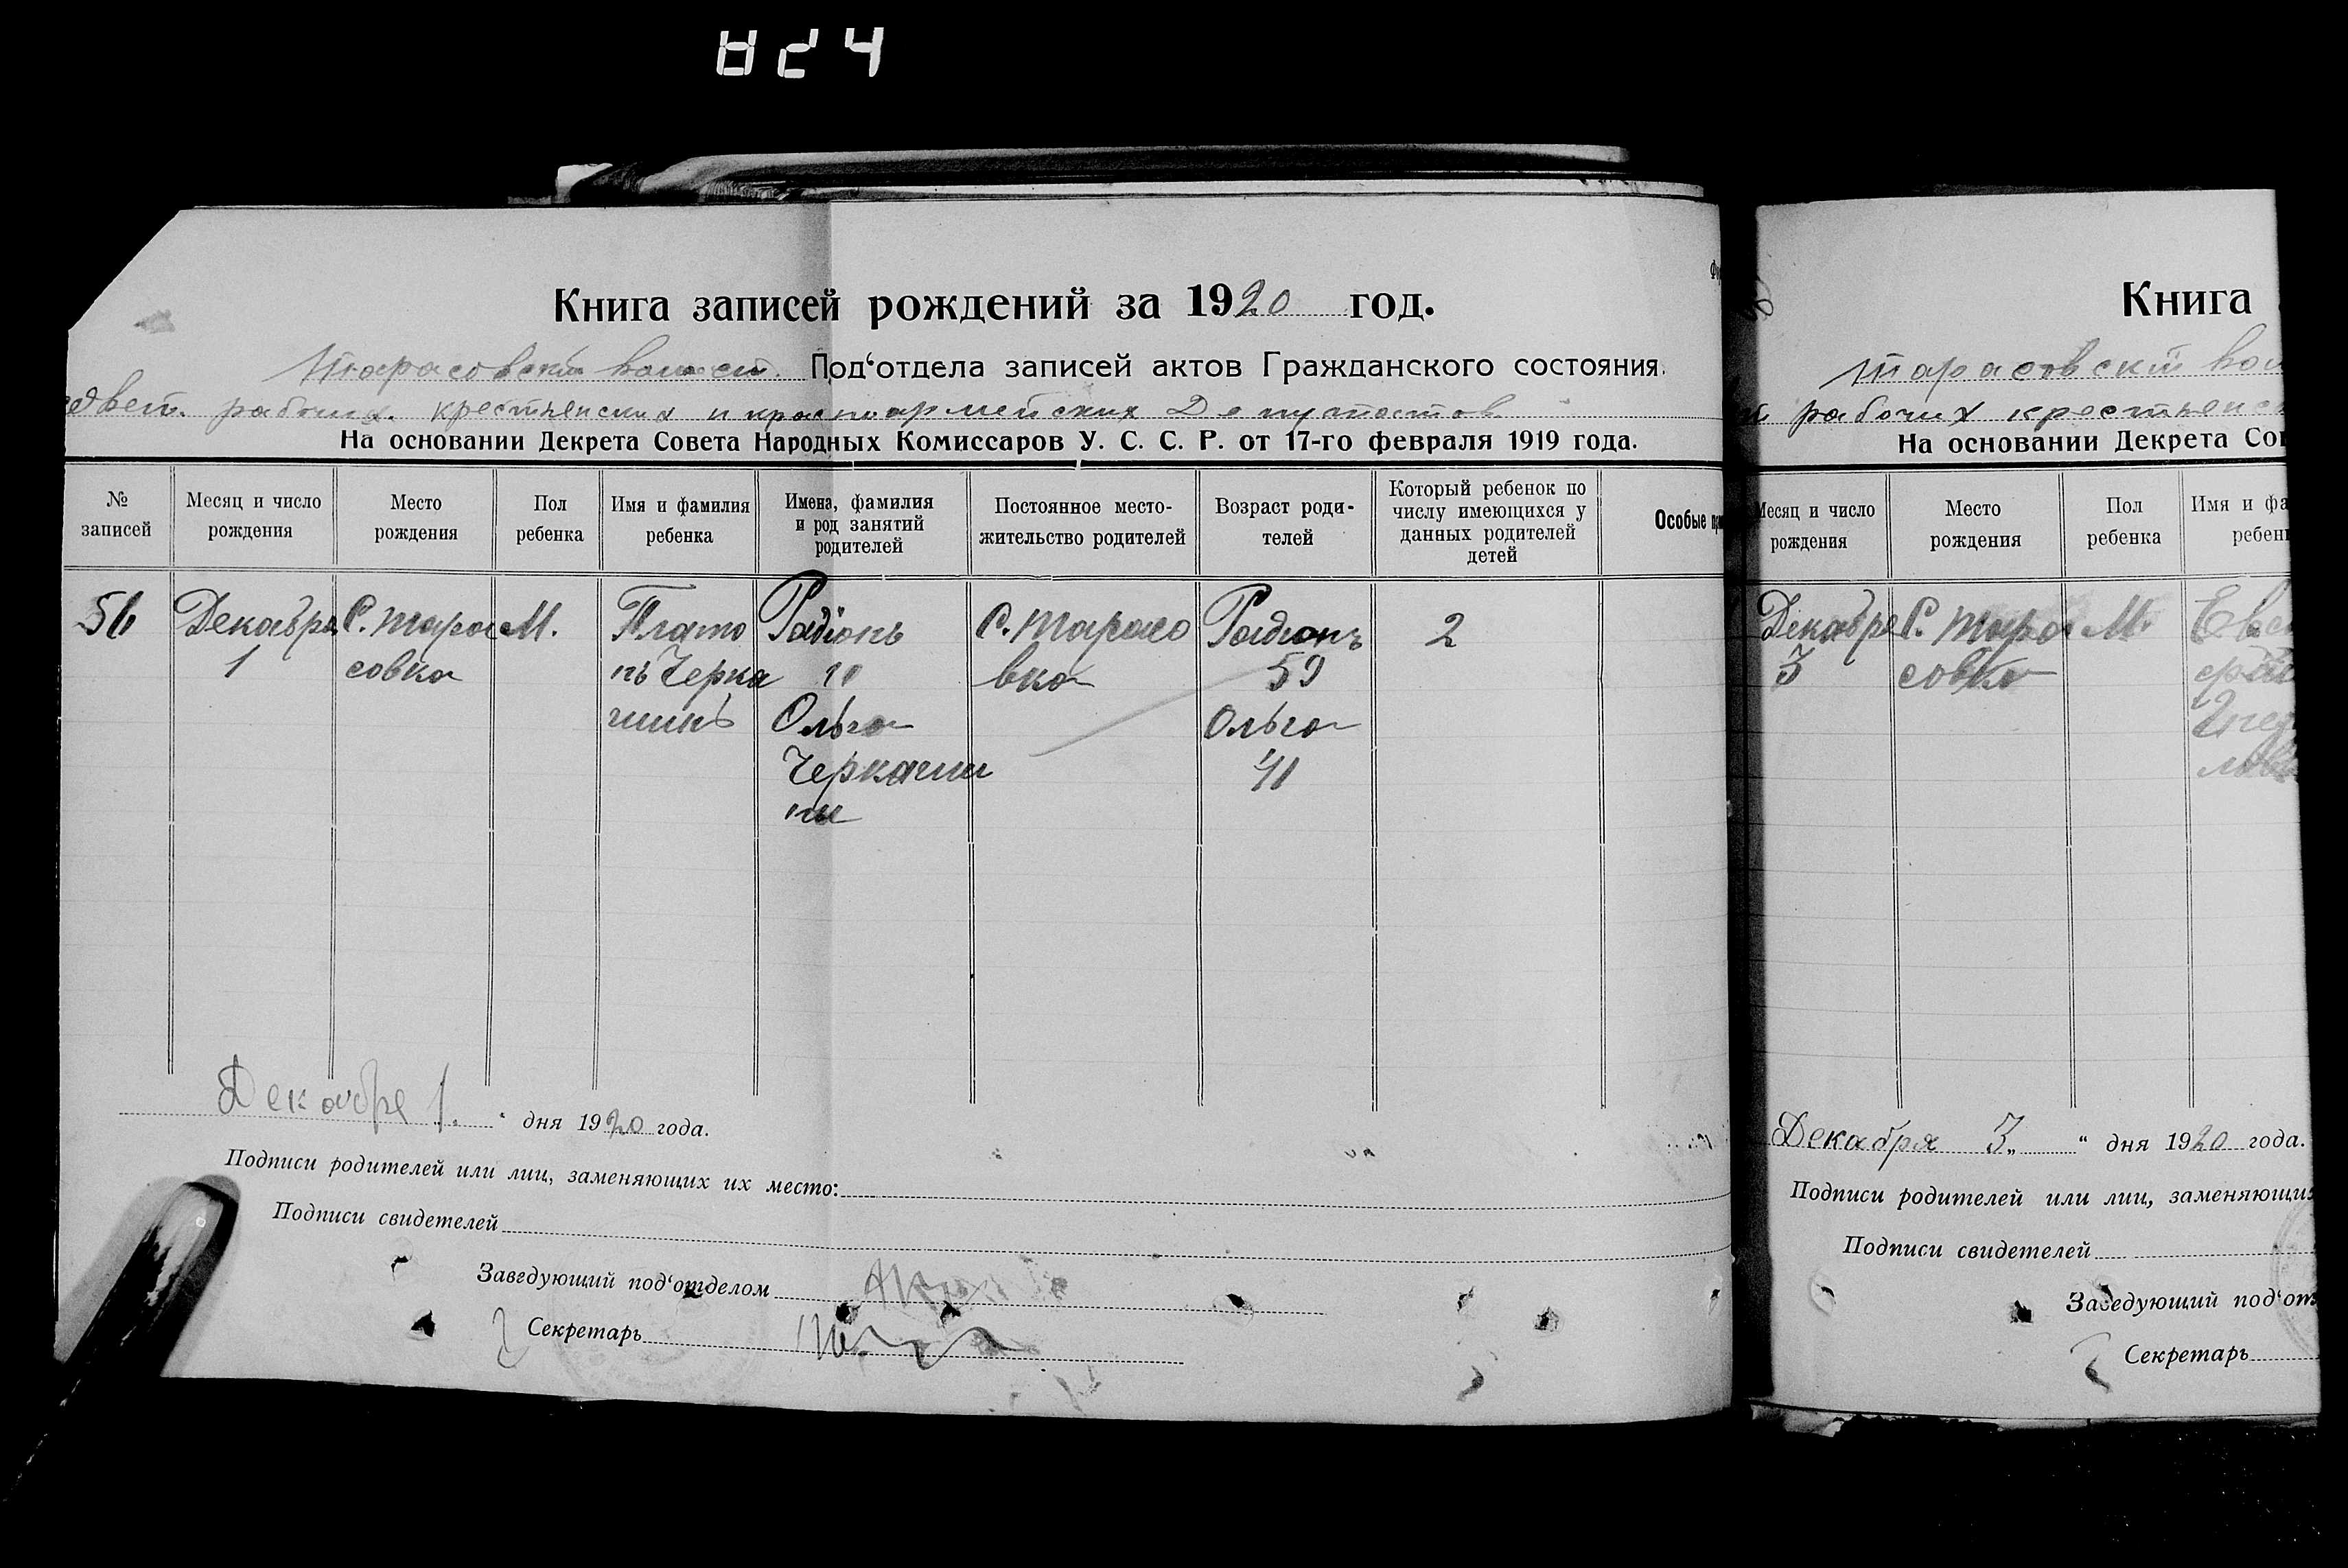 824
Книга записей рождений за 1920 год.
Тарасовский Под‘отдела записей актов Гражданского состояния.
рабочих. крестьенских и красноармейских Депутатов
На основании Декрета Совета Народных Комиссаров У. С. С. Р. от 17-го февраля 1919 года.
№ записей
Месяц и число рождения
Место рождения
Пол ребенка
Имя и фамилия ребенка
Имена, фамилия и род занятий родителей
Постоянное место-жительство родителей
Возраст роди-телей
Который ребенок по числу имеющихся у данных родителей детей
Особые
56
Декабря
1
С. Тара
совка
М.
Плато
нъ Черка
шинъ
Радіонъ
"
Ольга
Черкаши
ны
С. Тарасо
вка
Радіонъ
59
Ольга
41
2
Декабре 1. " дня 1920 года.
Подписи родителей или лиц, заменяющих их место:
Подписи свидетелей
Заведующий под‘отделом
Секретарь
Книга
Тарасовский
рабочих крестьенск
На основании Декрета Сов
Месяц и число рождения
Место рождения
Пол ребенка
Имя и фа
ребен
Декабре
3
С. Тара
совка
М.
Декабря 3 " дня 1920 года.
Подписи родителей или лиц, заменяющих
Подписи свидетелей
Заведующий под‘от
Секретарь